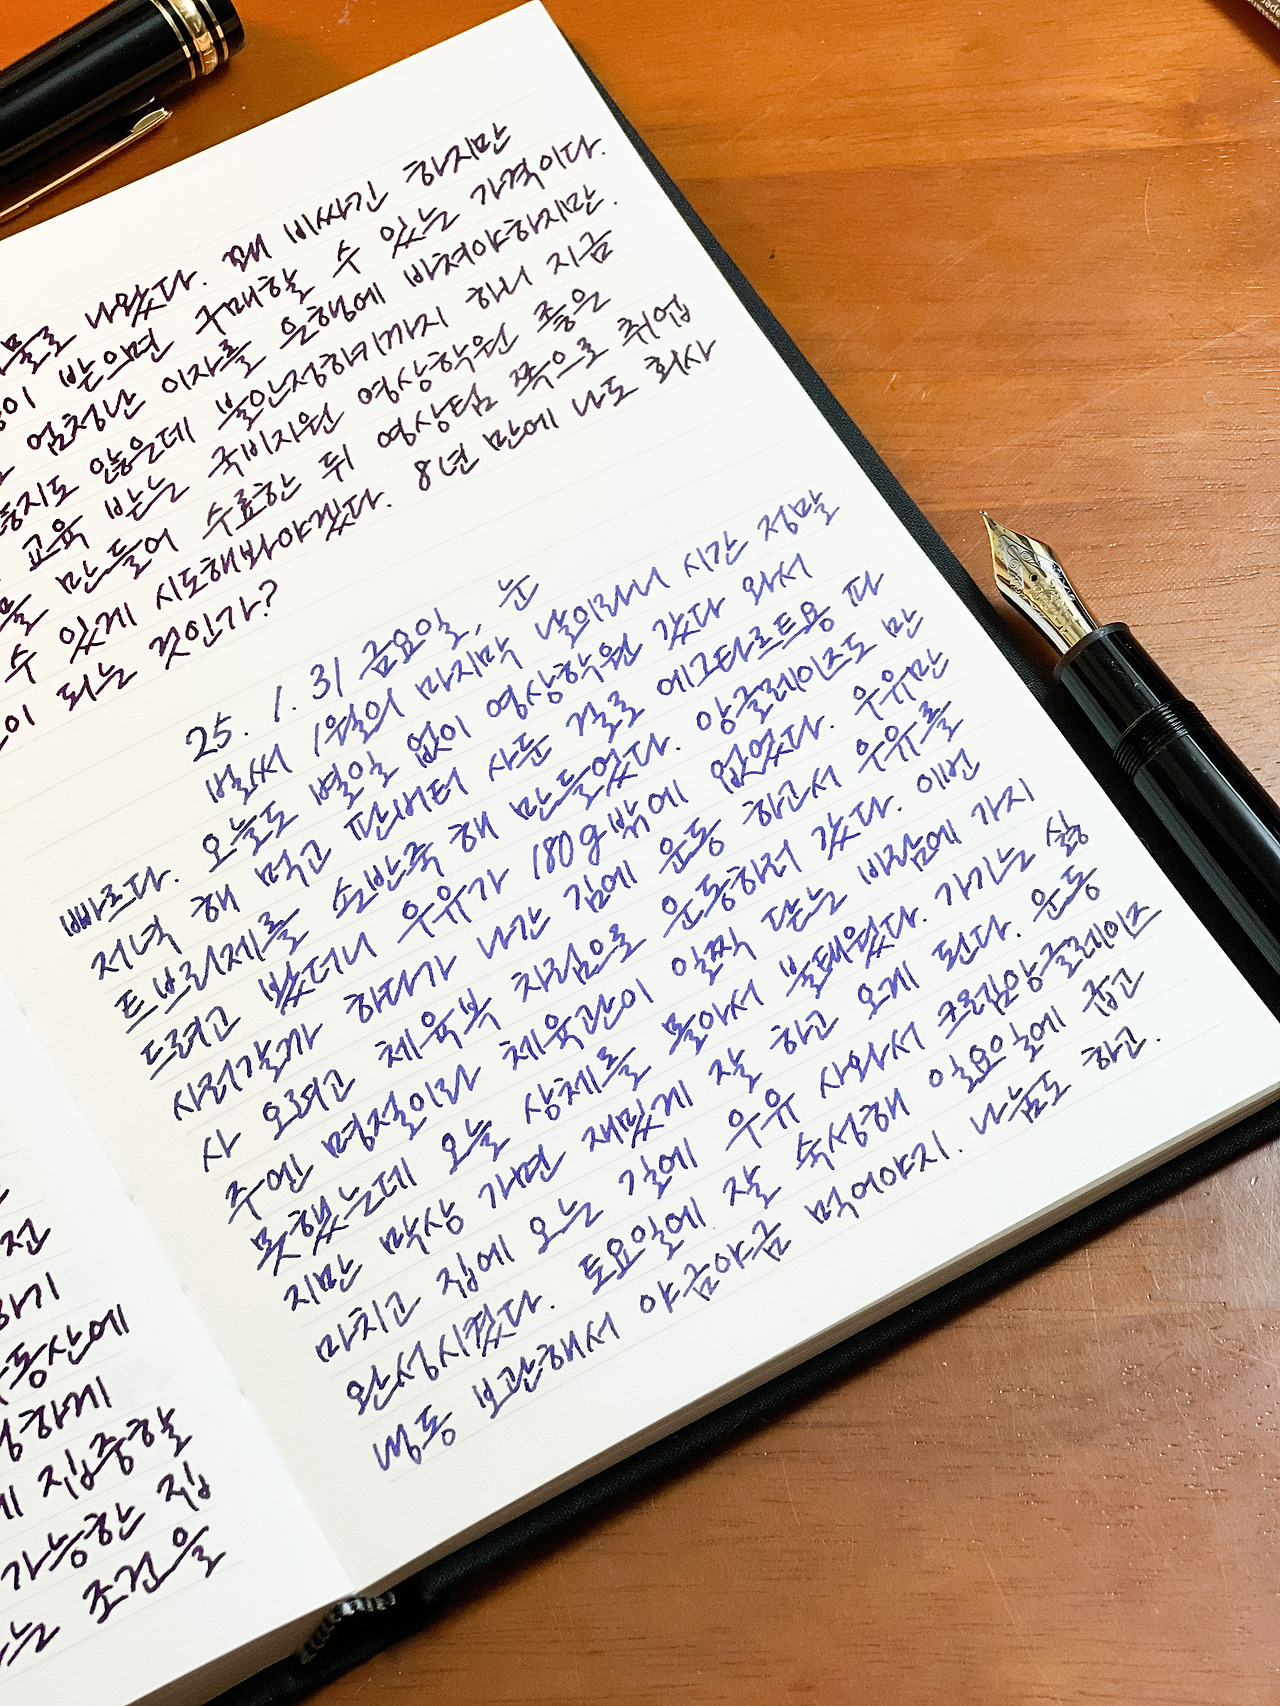 물로 나왔다. 꽤 비싸긴 하지만
받으면 구매할 수 있는 가격이다.
엄청난 이자를 은행에 바쳐야하지만.
않은데 불안정하기까지 하니 지금
교육 받는 국비지원 영상학원 좋은
만들어 수료한 뒤 영상팀 쪽으로 취업
수 있게 시도해봐야겠다. 8년 만에 나도 회사
되는 것인가?
25. 1. 31 금요일, 눈
벌써 1월의 마지막 날이라니 시간 정말
빠르다. 오늘도 별일 없이 영상학원 갔다 와서
저녁 해 먹고 판버터 사둔 걸로 에그타르트용 파
트브리제를 손반죽 해 만들었다. 앙글레이즈도 만
드려고 봤더니 우유가 180g밖에 없었다. 우유만
사러갈까 하다가 나간 김에 운동 하고서 우유를
사 오려고 체육복 차림으로 운동하러 갔다. 이번
주엔 명절이라 체육관이 일찍 닫는 바람에 가지
못했는데 오늘 상체를 몰아서 불태웠다. 가기는 싫
지만 막상 가면 재밌게 잘 하고 오게 된다. 운동
마치고 집에 오는 길에 우유 사와서 크림앙글레이즈
완성시켰다. 토요일에 잘 숙성해 일요일에 굽고
냉동 보관해서 야금야금 먹어야지. 나눔도 하고.
하기
동산에
하게
집중할
가능한 집
조건을